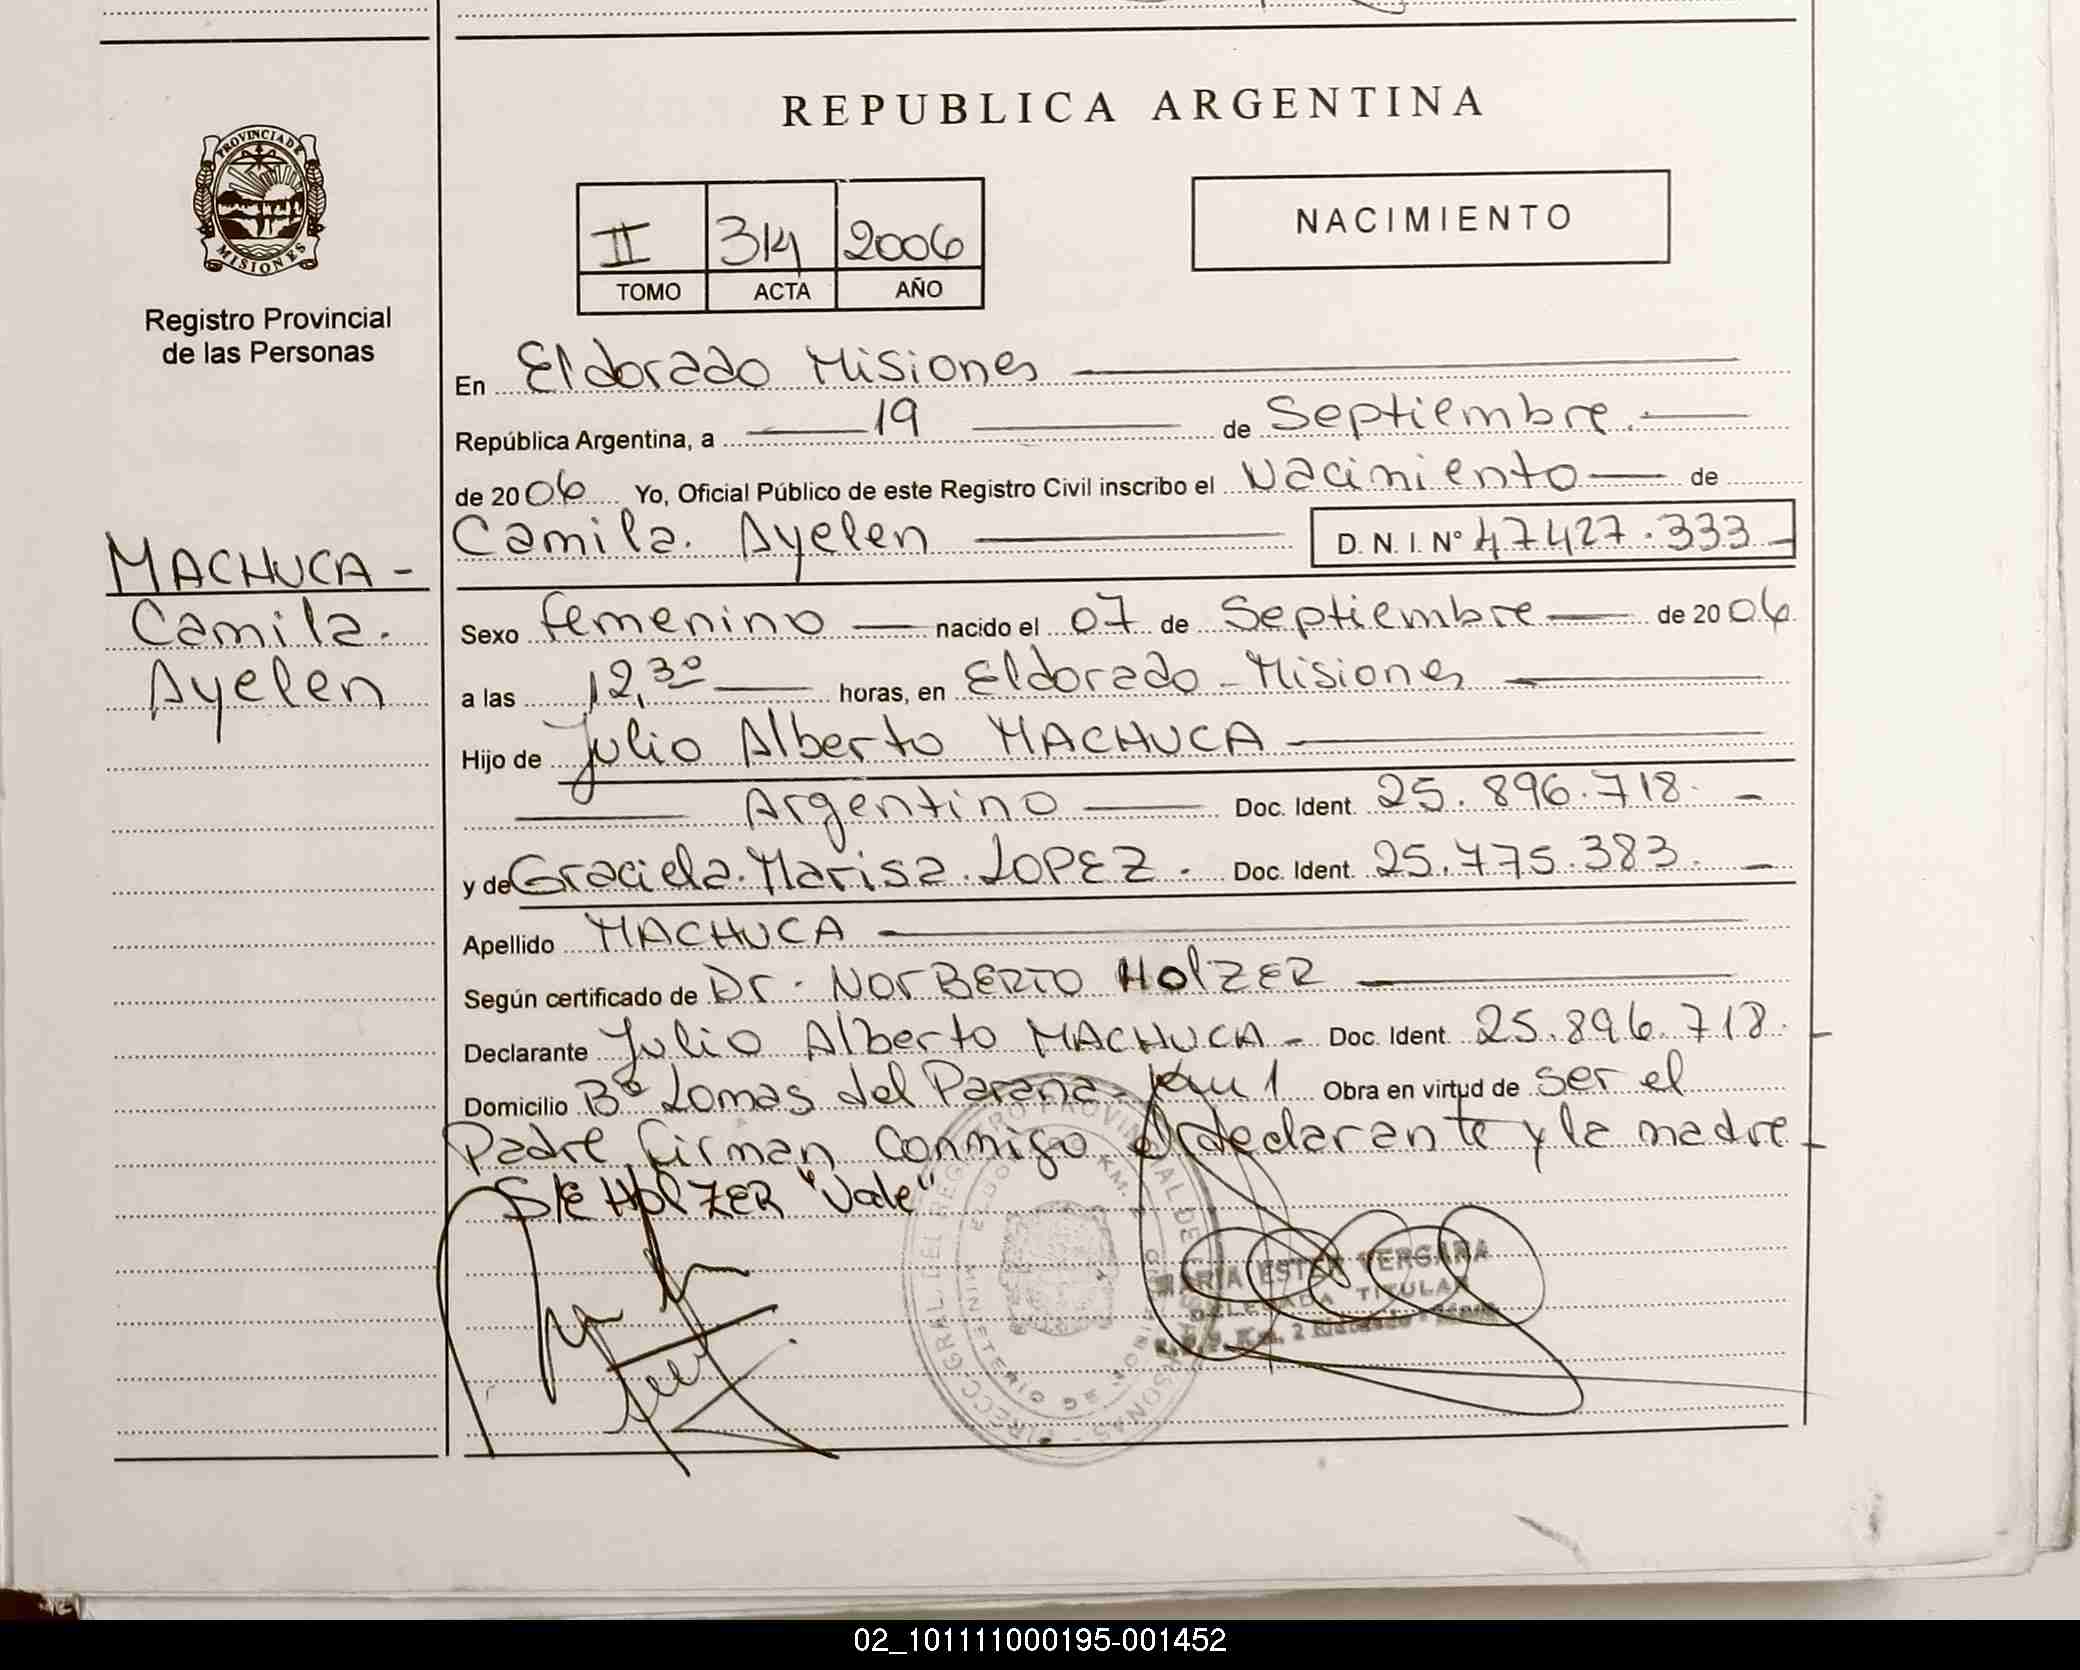 REPUBLICA ARGENTINA
PROVINCIA DE
MISIONES
Registro Provincial
de las Personas
II 314 2006
TOMO ACTA AÑO
NACIMIENTO
En Eldorado Misiones
República Argentina, a 19 de Septiembre
de 2006 Yo, Oficial Público de este Registro Civil inscribo el Nacimiento de
Camila Ayelen D. N. I. Nº 47427.333
MACHUCA -
Camila
Ayelen
Sexo femenino nacido el 07 de Septiembre de 2006
a las 12,30 horas, en Eldorado - Misiones
Hijo de Julio Alberto MACHUCA
Argentino Doc. Ident. 25.896.718
y de Graciela Marisa LOPEZ Doc. Ident. 25.775.383
Apellido MACHUCA
Según certificado de Dr. NORBERTO HOLZER
Declarante Julio Alberto MACHUCA - Doc. Ident. 25.896.718
Domicilio Bº Lomas del Parana Km 1 Obra en virtud de ser el
Padre firman conmigo el declarante y la madre
S/E HOLZER "Vale"
MARIA ESTER VERGARA
DELEGADA TITULAR
02_101111000195-001452